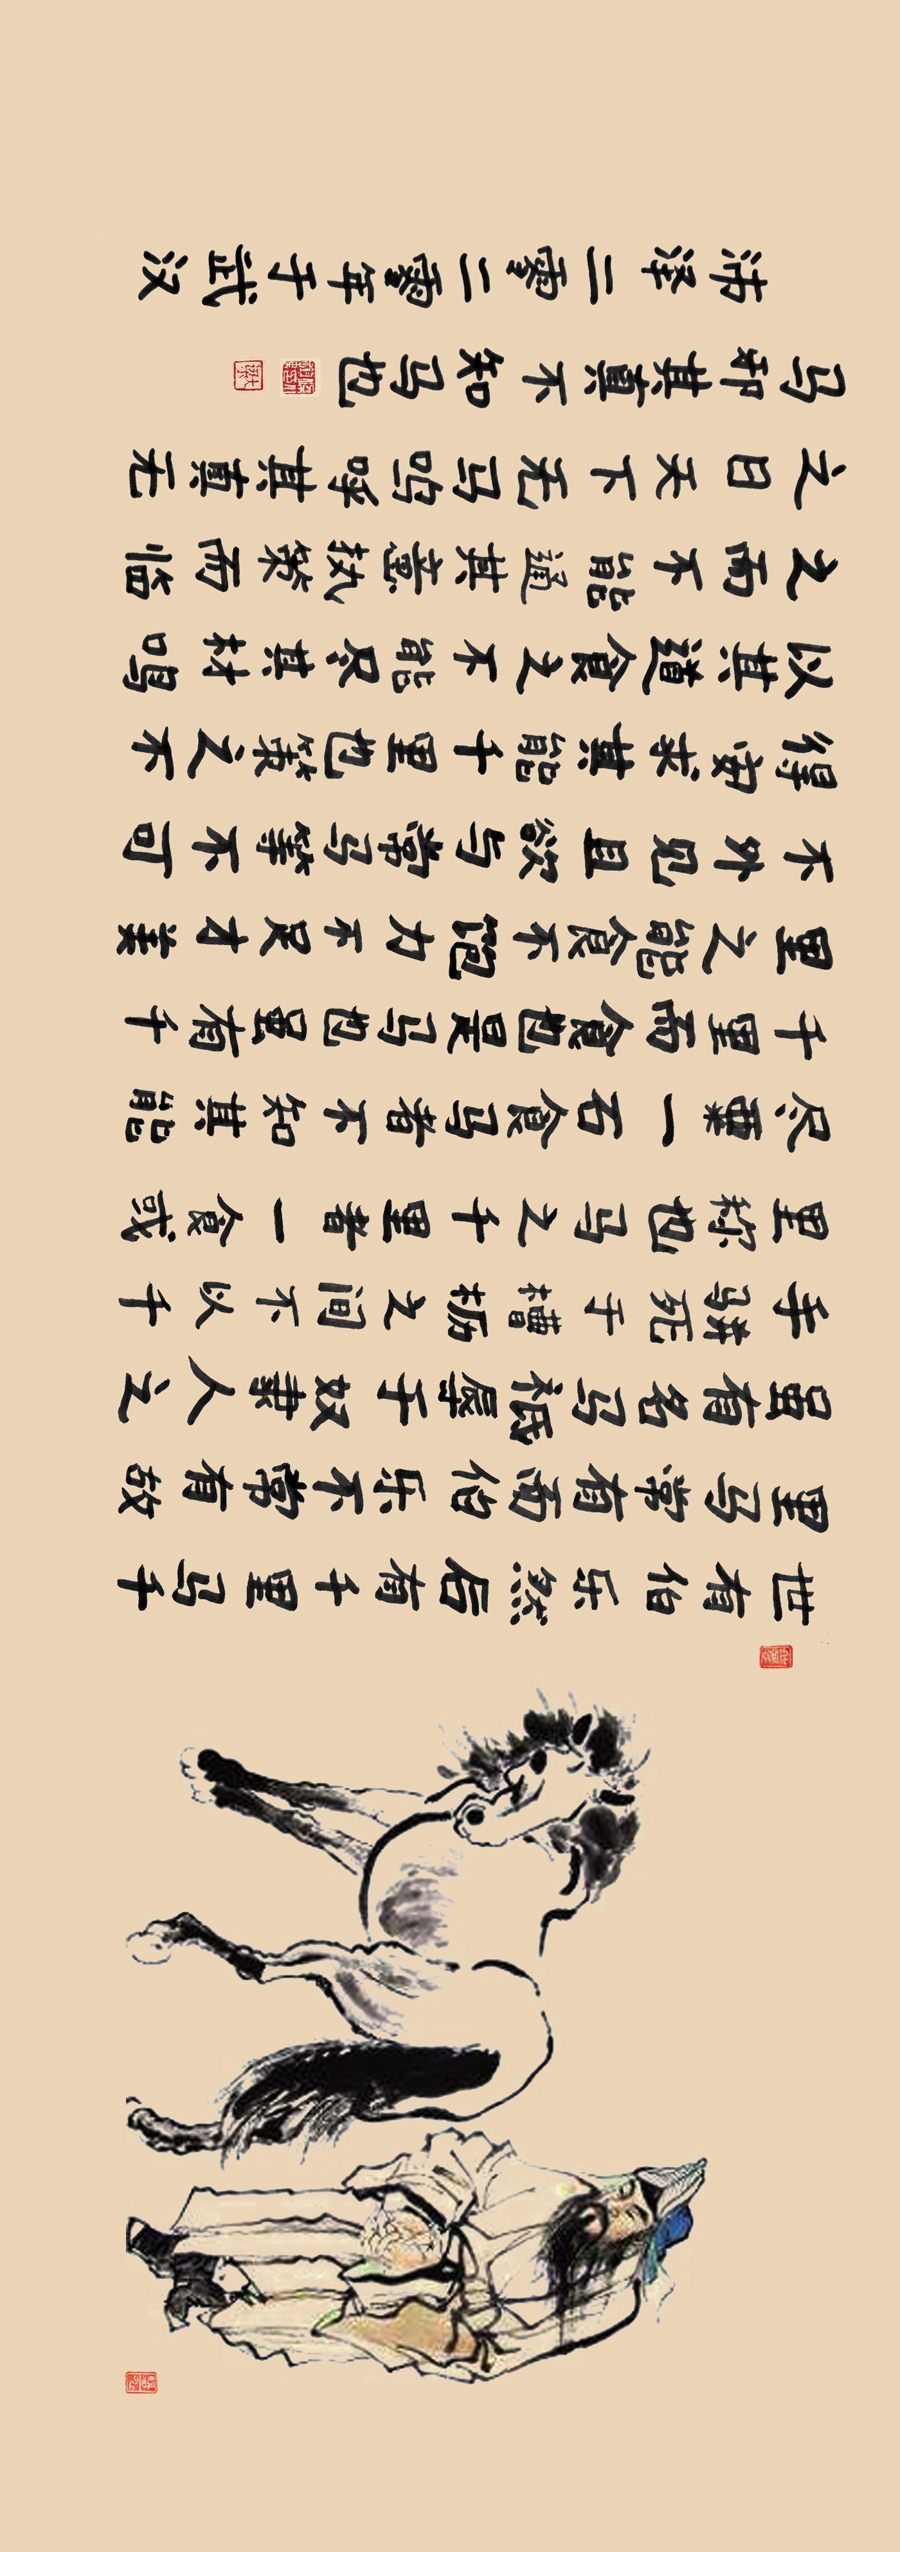 世有伯乐然后有千里马千
里马常有而伯乐不常有故
虽有名马祗辱于奴隶人之
手骈死于槽枥之间不以千
里称也马之千里者一食或
尽粟一石食马者不知其能
千里而食也是马也虽有千
里之能食不饱力不足才美
不外见且欲与常马等不可
得安求其能千里也策之不
以其道食之不能尽其材鸣
之而不能通其意执策而临
之曰天下无马呜呼其真无
马邪其真不知马也
沛泽二零二零年于武汉